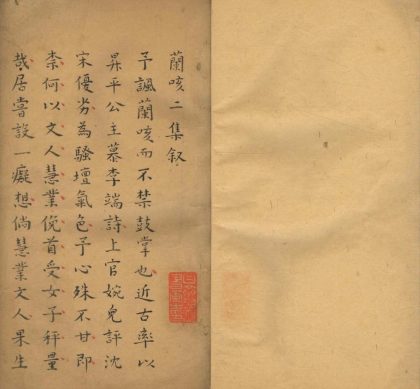 蘭咳二集叙
予諷蘭咳而不禁鼓掌也近古率以
昇平公主慕李端詩上官婉兒評沈
宋優劣為騷壇氣色予心殊不甘即
柰何以文人慧業俛首受女子秤量
哉居嘗設一癡想倘慧業文人果生